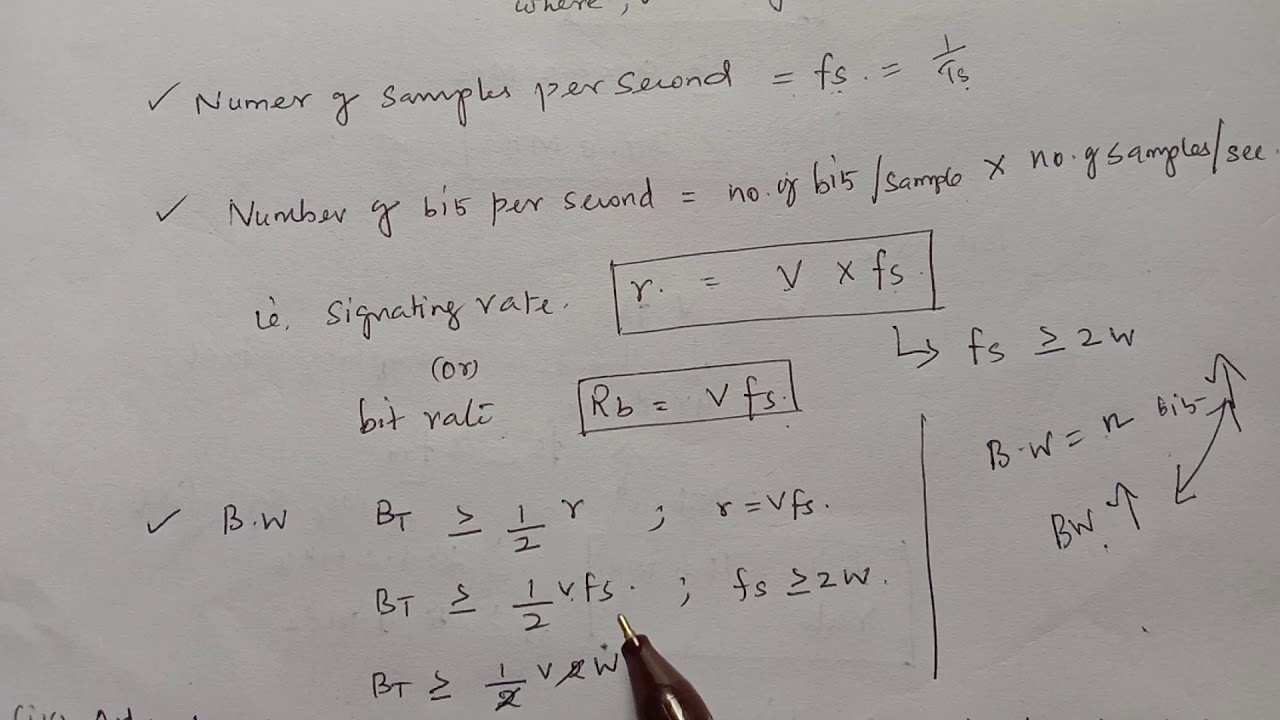 where,
✓ Numer of samples per second = fs. = 1/Ts
✓ Number of bits per second = no. of bits/sample × no. of samples/sec.
ie, Signating rate. r. = V × fs.
(or)
↳ fs ≥ 2W
bit rate Rb = V fs.
B.W = n Bits ↑
✓ B.W BT ≥ 1/2 r ; r = Vfs.
BW ↑
BT ≥ 1/2 V fs. ; fs ≥ 2W.
BT ≥ 1/2 V 2 W